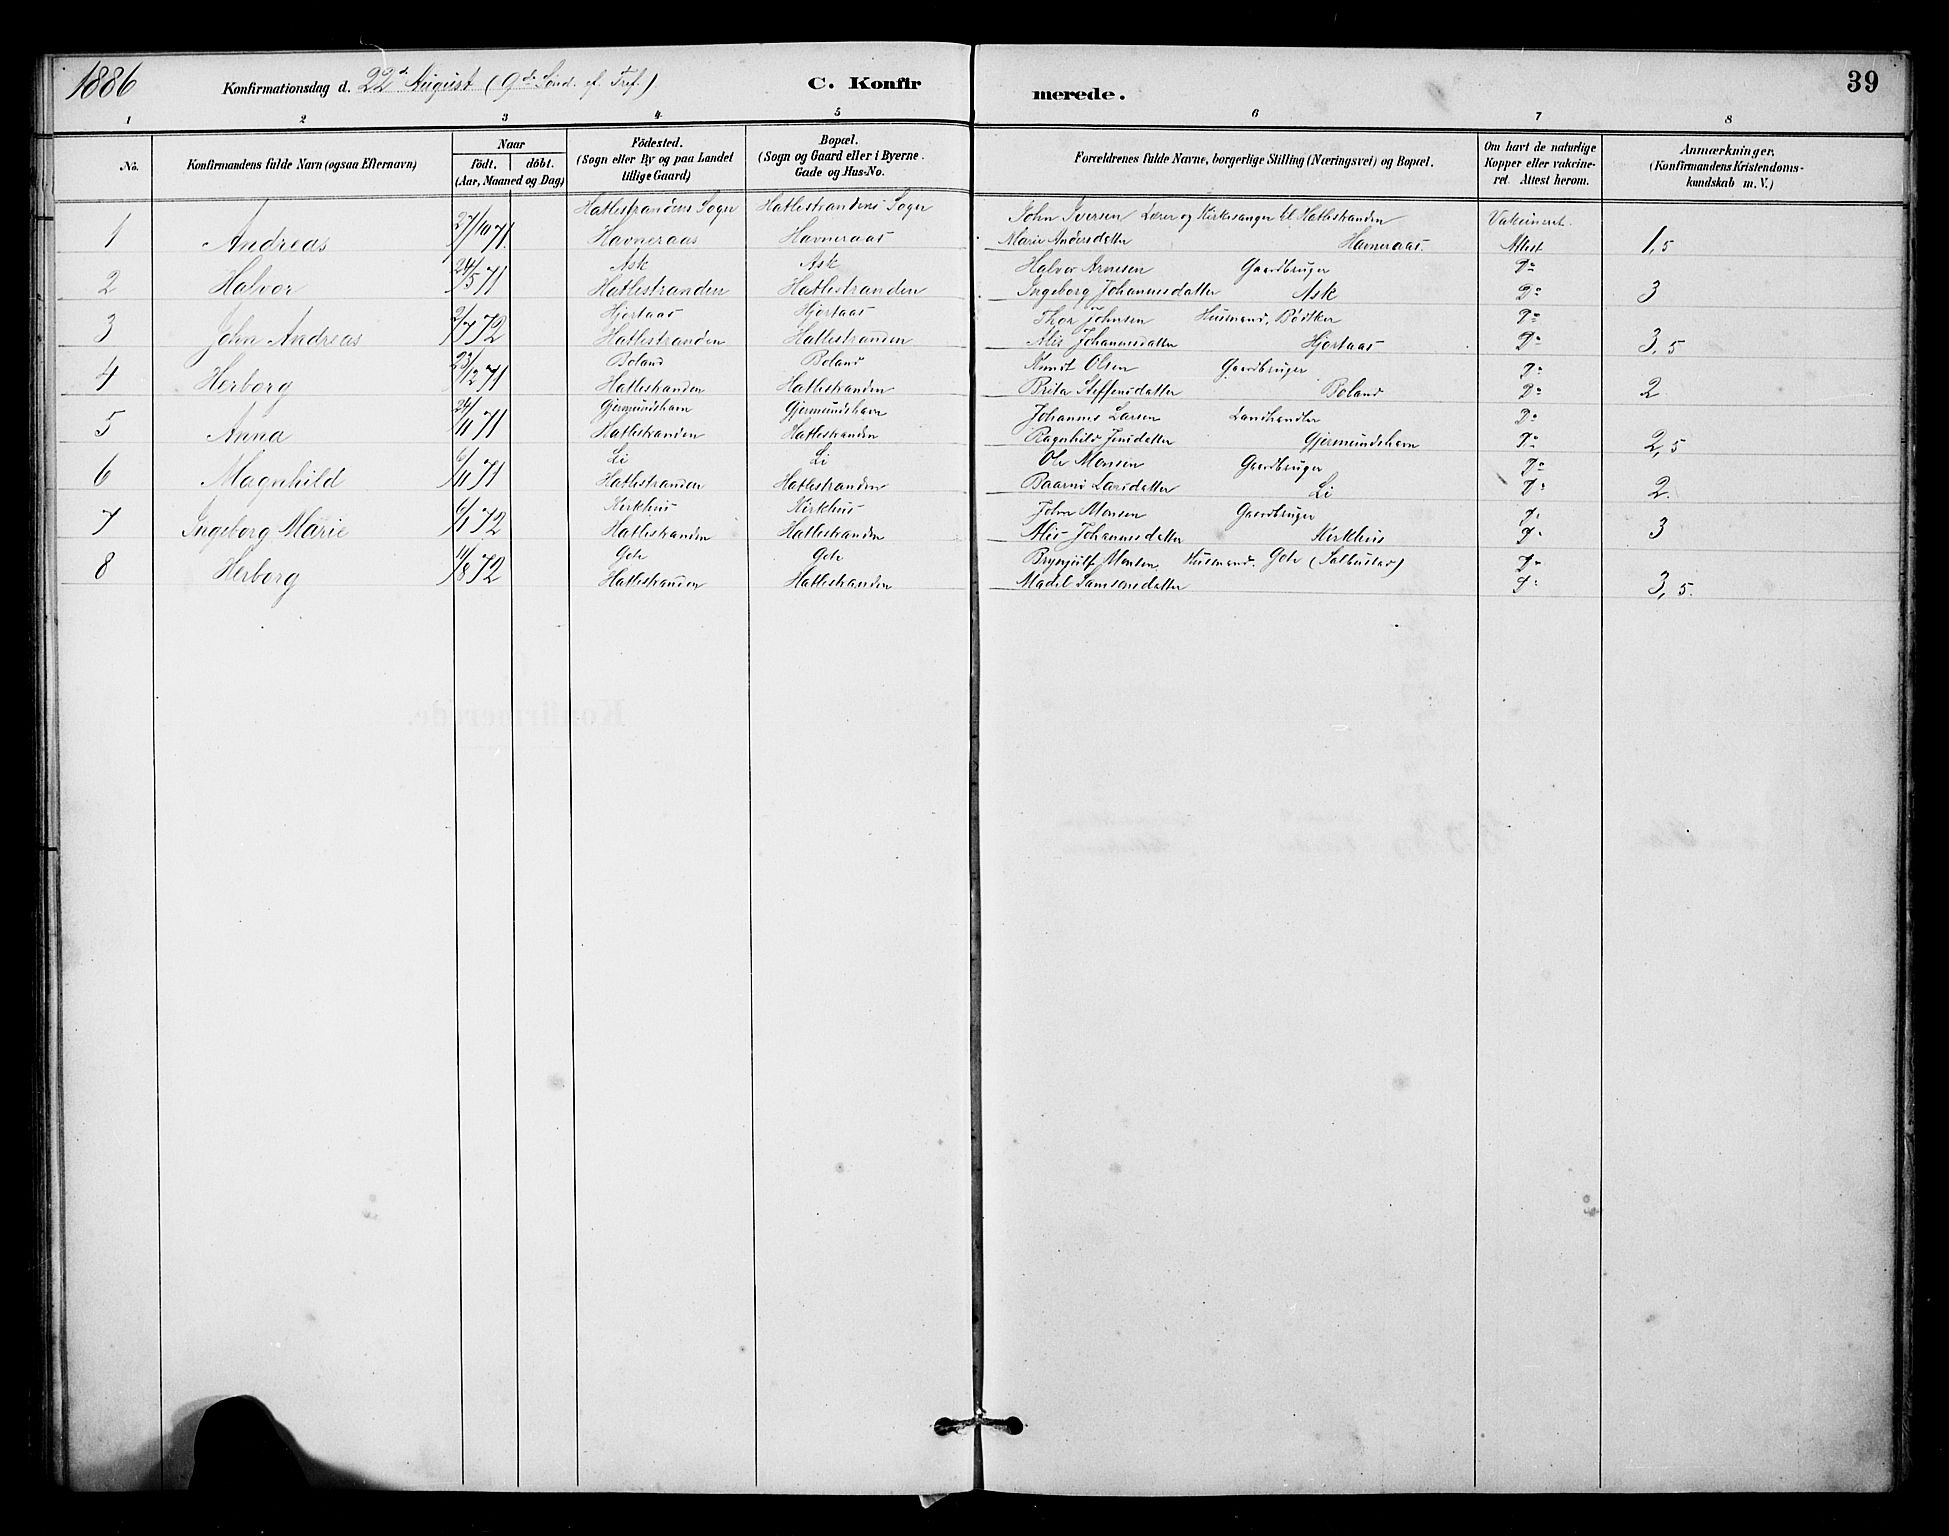 1886
Konfirmationsdag d. 22d August (9de Sönd. ef. Tref.)
C. Konfir
merede.
39
1 2 3 4 5 6 7 8
No.
Konfirmandens fulde Navn (ogsaa Efternavn)
Naar
födt. döbt.
(Aar, Maaned og Dag)
Födested.
(Sogn eller By og paa Landet
tillige Gaard)
Bopæl.
(Sogn og Gaard eller i Byerne.
Gade og Hus-No.
Forældrenes fulde Navne, borgerlige Stilling (Næringsvei) og Bopæl.
Om havt de naturlige
Kopper eller vakcine-
ret. Attest herom.
Anmærkninger,
(Konfirmandens Kristendoms-
kundskab m. V.)
Hatlestrandens Sogn Hatlestrandens Sogn John Iversen Lærer og Kirkesanger til Hatlestranden Vakcineret.
1 Andreas 27/10 71. Havneraas Havneraas Marie Andersdatter Havneraas. Attest 1,5
Ask Ask Halvor Arnesen Gaardbruger Do
2 Halvor 24/5 71 Hatlestranden Hatlestranden Ingeborg Johannesdatter Ask Do 3
Hjortaas Hjortaas Thor Johnsen Husmand, Bödtker Do
3 John Andreas 2/7 72 Hatlestranden Hatlestranden Alis Johannesdatter Hjortaas Do 3,5
Boland Boland Knut Olsen Gaardbruger Do
4 Herborg 23/12 71 Hatlestranden Hatlestranden Brita Steffensdatter Boland Do 2
Gjermundshavn Gjermundshavn Johannes Larsen Landhandler Do
5 Anna 24/11 71 Hatlestranden Hatlestranden Ragnhild Jensdatter Gjermundshavn Do 2,5
Li Li Ole Monsen Gaardbruger Do
6 Magnhild 6/11 71 Hatlestranden Hatlestranden Baarni Larsdatter Li Do 2.
Kirkhus Kirkhus John Monsen Gaardbruger Do
7 Ingeborg Marie 6/1 72 Hatlestranden Hatlestranden Alis Johannesdatter Kirkhus Do 3
Gole Gole Brynjulf Monsen. Husmand. Gole (Salbustad) Do
8 Herborg 11/8 72 Hatlestranden Hatlestranden Madel Samsonsdatter Do 3,5.